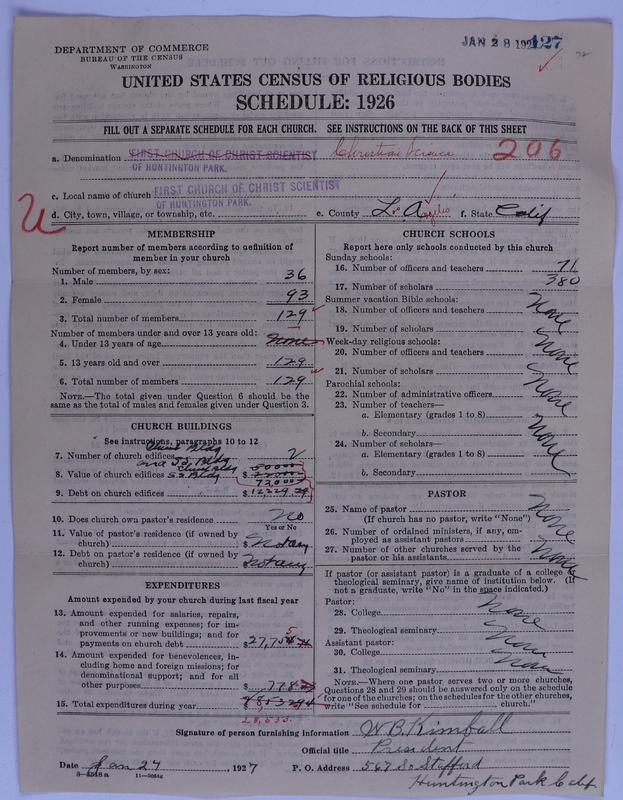 DEPARTMENT OF COMMERCE
BUREAU OF THE CENSUS
WASHINGTON
JAN 28 192
127
UNITED STATES CENSUS OF RELIGIOUS BODIES
SCHEDULE: 1926
FILL OUT A SEPARATE SCHEDULE FOR EACH CHURCH. SEE INSTRUCTIONS ON THE BACK OF THIS SHEET
a. Denomination FIRST CHURCH OF CHRIST SCIENTIST Christian Science 206
OF HUNTINGTON PARK.
c. Local name of church FIRST CHURCH OF CHRIST SCIENTIST
OF HUNTINGTON PARK.
d. City, town, village, or township, etc. e. County Los Angeles f. State Calif
U
MEMBERSHIP
Report number of members according to definition of
member in your church
Number of members, by sex:
1. Male 36
2. Female 93
3. Total number of members 129
Number of members under and over 13 years old:
4. Under 13 years of age None
5. 13 years old and over 129
6. Total number of members 129
NOTE.—The total given under Question 6 should be the
same as the total of males and females given under Question 3.
CHURCH BUILDINGS
See instructions, paragraphs 10 to 12
7. Number of church edifices 2
8. Value of church edifices S.S. Bldg $
72,000
9. Debt on church edifices $12,229.29
10. Does church own pastor's residence No
Yes or No
11. Value of pastor's residence (if owned by
church) $
12. Debt on pastor's residence (if owned by
church)
EXPENDITURES
Amount expended by your church during last fiscal year
13. Amount expended for salaries, repairs,
and other running expenses; for im-
provements or new buildings; and for
payments on church debt $27,75
14. Amount expended for benevolences, in-
cluding home and foreign missions; for
denominational support; and for all
other purposes $ 778
15. Total expenditures during year $
28,533.
CHURCH SCHOOLS
Report here only schools conducted by this church
Sunday schools:
16. Number of officers and teachers 71
17. Number of scholars 380
Summer vacation Bible schools:
18. Number of officers and teachers None
19. Number of scholars None
Week-day religious schools:
20. Number of officers and teachers None
21. Number of scholars None
Parochial schools:
22. Number of administrative officers None
23. Number of teachers—
a. Elementary (grades 1 to 8) None
b. Secondary
24. Number of scholars—
a. Elementary (grades 1 to 8) None
b. Secondary
PASTOR
25. Name of pastor None
(If church has no pastor, write "None")
26. Number of ordained ministers, if any, em-
ployed as assistant pastors None
27. Number of other churches served by the
pastor or his assistants None
If pastor (or assistant pastor) is a graduate of a college or
theological seminary, give name of institution below. (If
not a graduate, write "No" in the space indicated.)
Pastor:
28. College None
29. Theological seminary None
Assistant pastor:
30. College None
31. Theological seminary None
NOTE.—Where one pastor serves two or more churches,
Questions 28 and 29 should be answered only on the schedule
for one of the churches; on the schedules for the other churches,
write "See schedule for church."
Signature of person furnishing information W.B. Kimball
Official title President
Date Jan 27, 1927 P. O. Address 567 So Stafford
8-5518 a 11-9064g Huntington Park Calif.